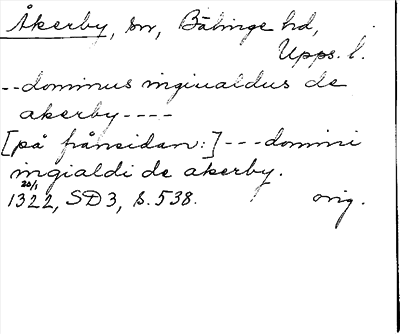 Åkerby, sn, Bälinge hd,
Upps. l.
--dominus ingiualdus de
akerby----
[på frånsidan:]---domini
ingialdi de akerby.
20/1
1322, SD 3, s. 538. orig.